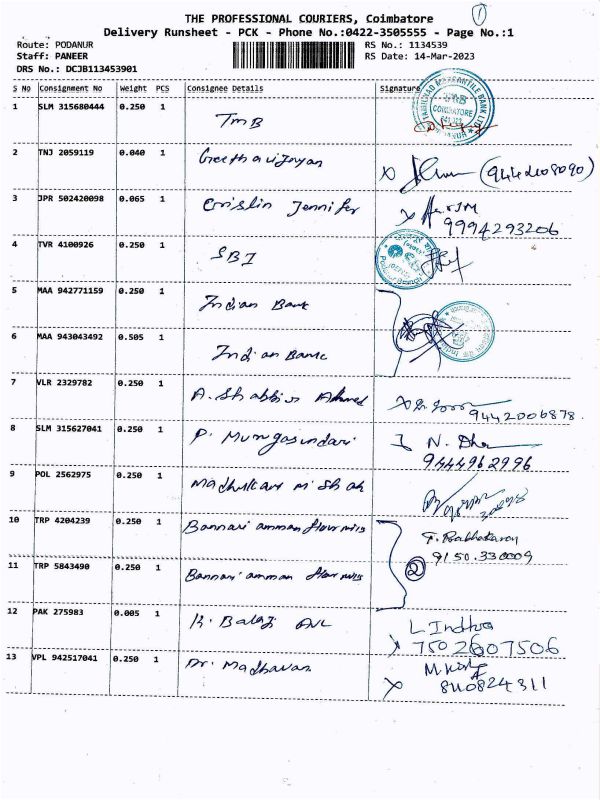 1
THE PROFESSIONAL COURIERS, Coimbatore
Delivery Runsheet - PCK - Phone No.:0422-3505555 - Page No.:1
Route: PODANUR RS No.: 1134539
Staff: PANEER RS Date: 14-Mar-2023
DRS No.: DCJB113453901
S No Consignment No Weight PCS Consignee Details Signature
1 SLM 315680444 0.250 1 TMB
2 TNJ 2059119 0.040 1 Geetha vijayan
3 JPR 502420098 0.065 1 Crislin Jennifer
9994293206
4 TVR 4100926 0.250 1 SBI
5 MAA 942771159 0.250 1 Indian Bank
6 MAA 943043492 0.505 1 Indian Bank
7 VLR 2329782 0.250 1 A. Shabbir Ahmed
9442006878
8 SLM 315627041 0.250 1 P. Murugasundari N. Dha
9444962996
9 POL 2562975 0.250 1 Madhukar M Shah
10 TRP 4204239 0.250 1 Bannari amman flour mills
9150330009
11 TRP 5843490 0.250 1 Bannari amman flour mills 2
12 PAK 275983 0.005 1 K. Balaji AVL L Indhra
7502607506
13 VPL 942517041 0.250 1 Dr. Madhavan
8110824311